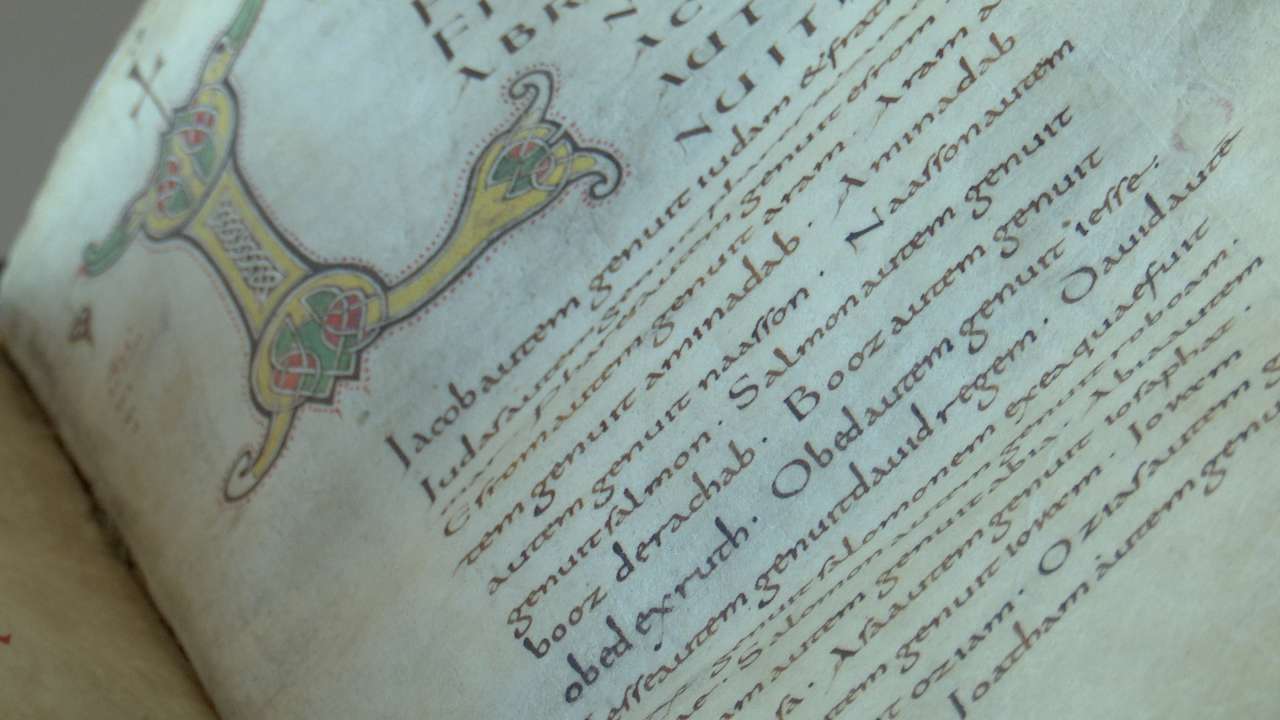 ABR
AUT
NUIT
Iacob autem genuit iudam & fratr
Iudas autem
Esrom autem genuit aram. Aram a
tem genuit aminadab. Aminadab
autem genuit naasson. Naasson autem
genuit salmon. Salmon autem genuit
booz derachab. Booz autem genuit
obed exruth. Obed autem genuit iesse.
iesse autem genuit dauid regem. Dauid autē
genuit salomonem exea quae fuit
Salomon autem genuit roboam.
am autem genuit abia. Abia autem
sa. Asa autem genuit iosaphat.
tem genuit ioram. Ioram
oziam. Ozias autem g
Ioatham autem genu